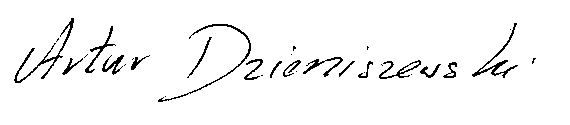 Artur Dzieniszewski